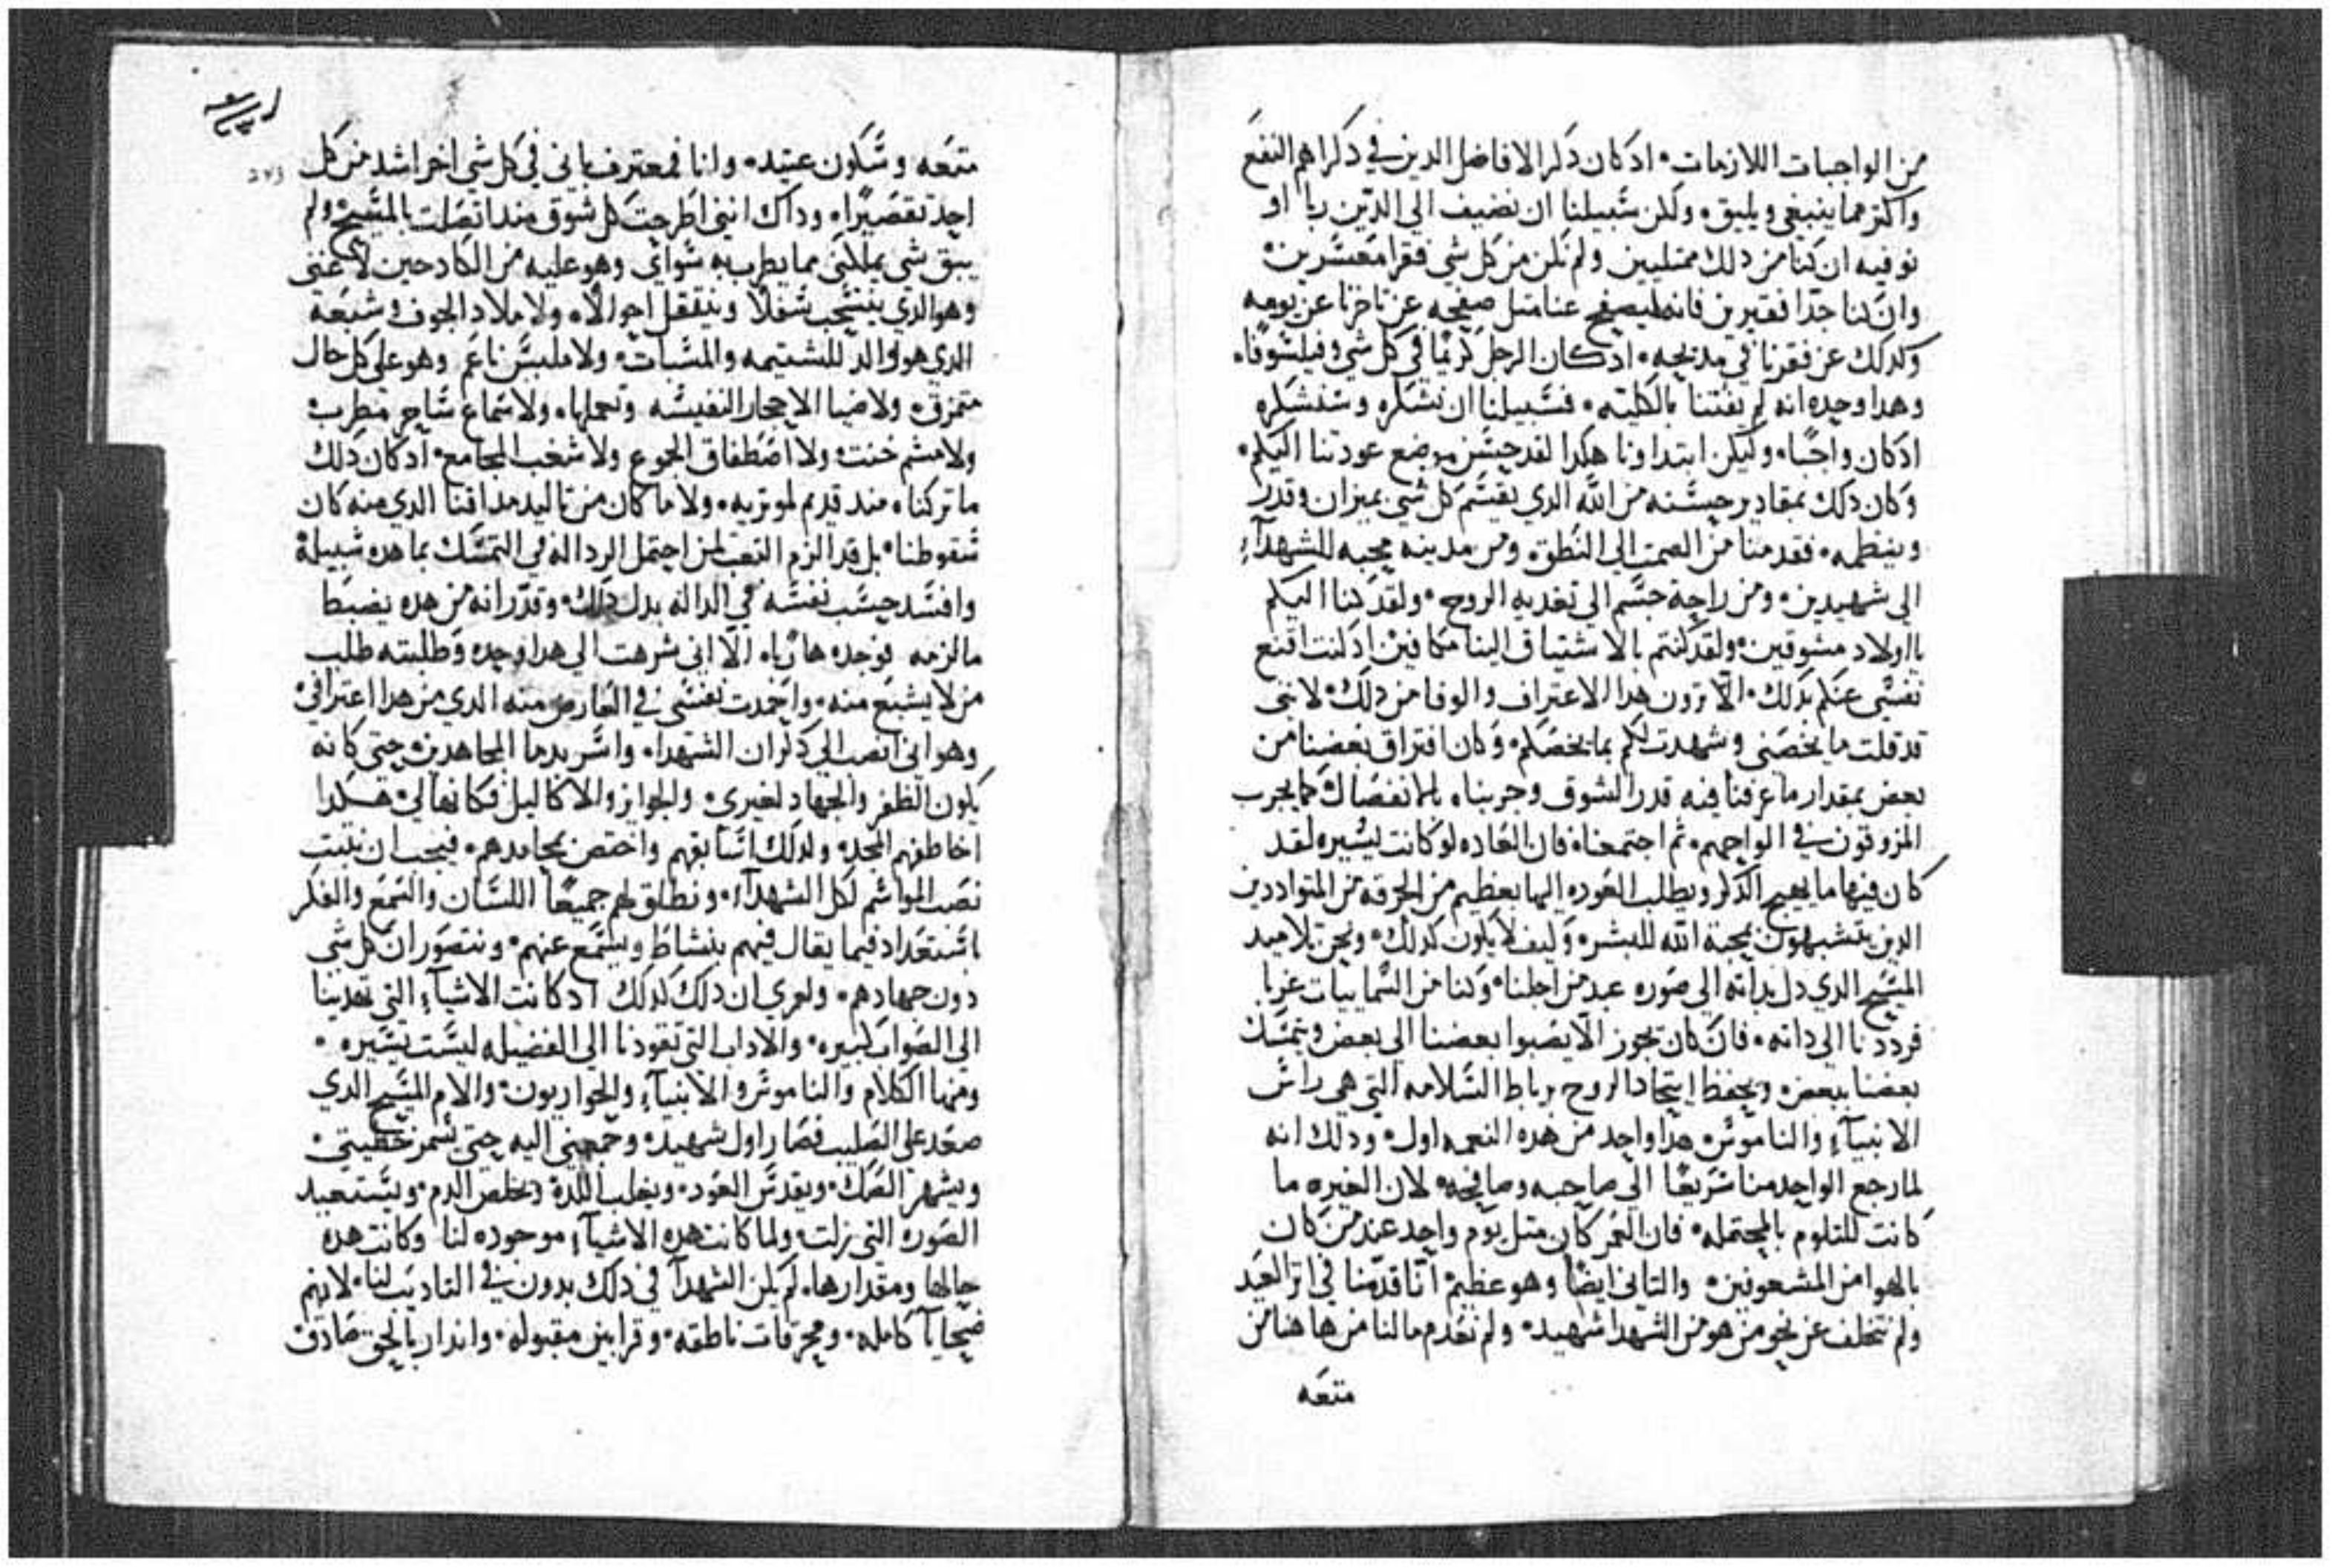 من الواجبات اللازمات ۰ اد كان دكر الافاضل الدين في دكراهم النفع
واكتر مما ينبغي ويليق ۰ ولكن سبيلنا ان نضيف الي الدين ربا او
نوفيه ان كنا من دلك ممتليين ولم نكن من كل شي فقرا معسرين ۰
وان كنا جدا فقيرين فانه ليصفح عنا متل صفحه عن تاخرنا عن يومه
وكدلك عن فقرنا في مديحه ۰ ادكان الرجل كريما في كل شي وفيلسوفا ۰
وهدا وحده انه لم يفتنا بالكليه ۰ فسبيلنا ان نشكره وسنشكره
ادكان واجبا ۰ وليكن ابتداونا هكدا لقد حسن موضع عودتنا اليكم ۰
وكان دلك بمقادير حسنه من الله الدي يقسم كل شي بميزان وقدر
وينظمه ۰ فقدمنا من الصمت الي النطق ۰ ومن مدينه محبه للشهدآء
الي شهيدين ۰ ومن راحة جسم الي تغديه الروح ۰ ولقد كنا اليكم
يا اولاد مشوقين ۰ ولقد كنتم بالاشتياق الينا مكافين اد كنت اقنع
نفسي عنكم بدلك ۰ الا ترون هدا الاعتراف والوفا من دلك ۰ لانني
قد قلت ما يخصني وشهدت لكم بما يخصكم ۰ وكان افتراق بعضنا من
بعض بمقدار ما عرفنا فيه قدر الشوق وجربناه بالانفصال كما يجرب
المزوقون في الواحهم ۰ تم اجتمعنا ۰ فان العاده لو كانت يسيره لقد
كان فيها ما يهيج الدكر ويطلب العوده اليها بعظيم من الحرقه من المتواددين
الدين يتشبهون بمحبة الله للبشر ۰ وكيف لا يكون كدلك ۰ ونحن تلاميد
المسيح الدي دل بداته الي صوره عبد من اجلنا ۰ وكنا من السماييات غربا
فردنا الي داته ۰ فان كان يجوز الا يصبوا بعضنا الي بعض ويتمسك
بعضنا ببعض ۰ ويحفظ اتحاد الروح برباط السلامه التي هي راس
الانبيآء والناموس ۰ هدا واحد من هده النعمه اول ۰ ودلك انه
لما رجع الواحد منا سريعا الي صاحبه وصافحه ۰ لان الغيره ما
كانت للتلوم بالمحتمله ۰ فان العمر كان متل يوم واحد عند من كان
بالهوا من المشعوفين ۰ والتاني ايضا وهو عظيم انا قدمنا في اتر العيد
ولم نتخلف عن نحو من هو من الشهدا شهيد ۰ ولم نعدم مالنا من هاهنا من
متعه
متعه وسكون عتيد ۰ وانا فمعترف باني في كل شي اخر اشد من كل
احد تقصيرا ۰ وداك انني اطرحت كل شوق مند اتصلت بالمسيح ولم
يبق شي يملكني مما يطرب به سواي وهو عليه من الكادحين لا غني
وهو الدي ينسحب سفلا وينتقل احوالا ۰ ولا ملاد الجوف وشبعه
الدي هو والد للشتيمه والمسبات ۰ ولا ملبس ناعم وهو علي كل حال
متمزق ۰ ولا ضيا الاحجار النفيسه وتجملها ۰ ولا سماع ساحر مطرب
ولا مشم خنت ۰ ولا اصطفاق الجموع ولا شغب المجامع ۰ ادكان دلك
ما تركناه مند قديم لموتريه ۰ ولا ما كان من تاليد مداقنا الدي منه كان
سقوطنا ۰ بل قد الزم التعب لمن احتمل الرداله في التمسك بما هده سبيله
وافسد حسب نفسه في الداله بدل دلك ۰ وقدر انه من هده يضبط
ما لزمه فوجده هاربا ۰ الا اني شرهت الي هدا وحده وطلبته طلب
من لا يشبع منه ۰ واخدت نفسي في العارض منه الدي من هدا اعترافي
وهو اني انصب الي دكران الشهدا ۰ واسر بدما المجاهدين ۰ حتي كانه
يكون الظفر والجهاد لغيري ۰ والجوايز والاكاليل فكانها لي هكدا
اخاطفهم المجد ۰ ولدلك اسابقهم واختص بمحامدهم ۰ فيجب ان نتبت
نصب المواسم لكل الشهدآء ۰ ونطلق لهم جميعا اللسان والسمع والفكر
باستعداد فيما يقال فيهم بنشاط ويسمع عنهم ۰ ونتصور ان كل شي
دون جهادهم ۰ ولعمري ان دلك كدلك ادكانت الاشيآء التي تهدينا
الي الصواب كبيره ۰ والاداب التي تقودنا الي الفضيله ليست يسيره ۰
ومنها الكلام والناموس والانبيآء والحواريون ۰ والام المسيح الدي
صعد علي الصليب فصار اول شهيد ۰ وجمعني اليه حتي يسمر خطيتي ۰
ويشهر الصك ۰ ويقدس العود ۰ ويغلب اللدة ويخلص الدم ۰ ويستعيد
الصوره التي زلت ۰ ولما كانت هده الاشيآء موجوده لنا وكانت هده
حالها ومقدارها ۰ لم يكن الشهدآ في دلك بدون في التاديب لنا ۰ لانهم
ضحايا كامله ۰ ومحرقات ناطقه ۰ وقرابين مقبوله ۰ واندار بالحق صادق